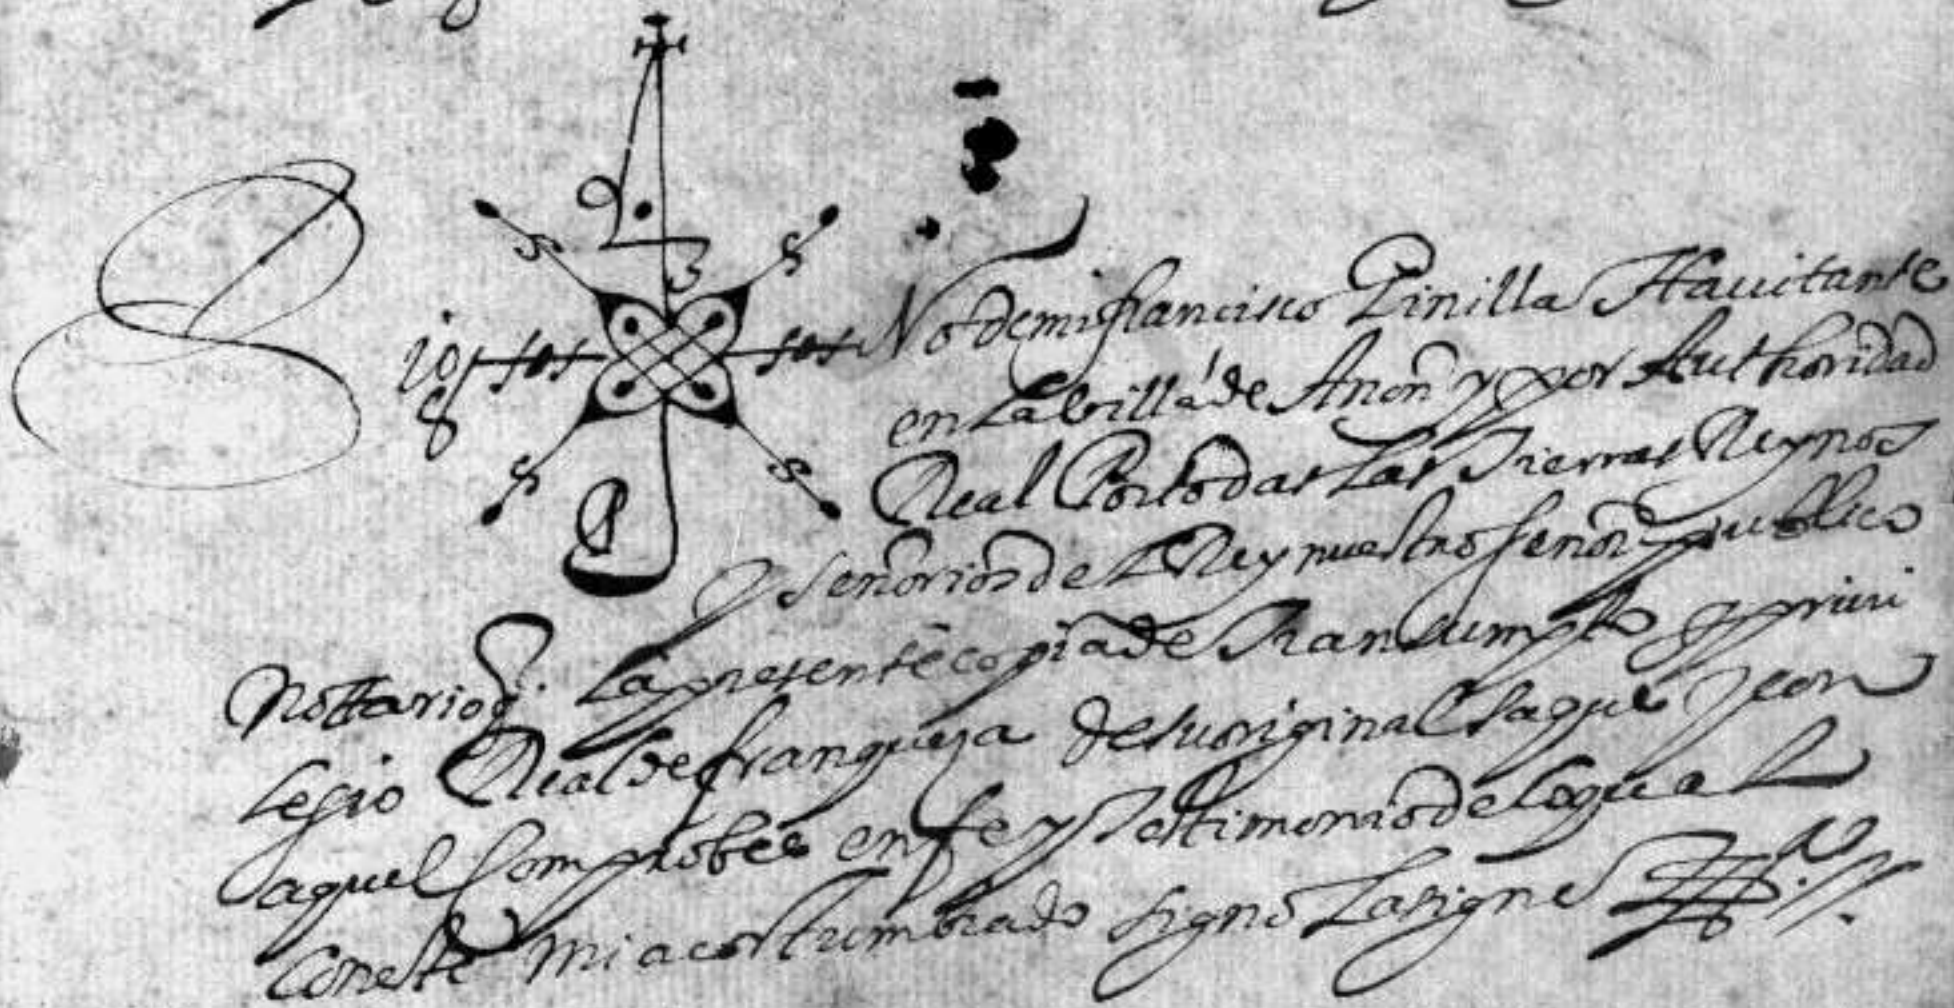 Sig No de mi francisco Pinilla Hauitante
en La Villa de Anon y por Authoridad
Real Por todas Las Tierras Reynos
y señorios de el Rey nuestro señor publico
Nottario q La presente copia de Transumpto y priui
legio Real de franqueza de su original saque y con
aquel Comprobee en fe y Testimonio de Loqual
con este mi acostumbrado signo La signe